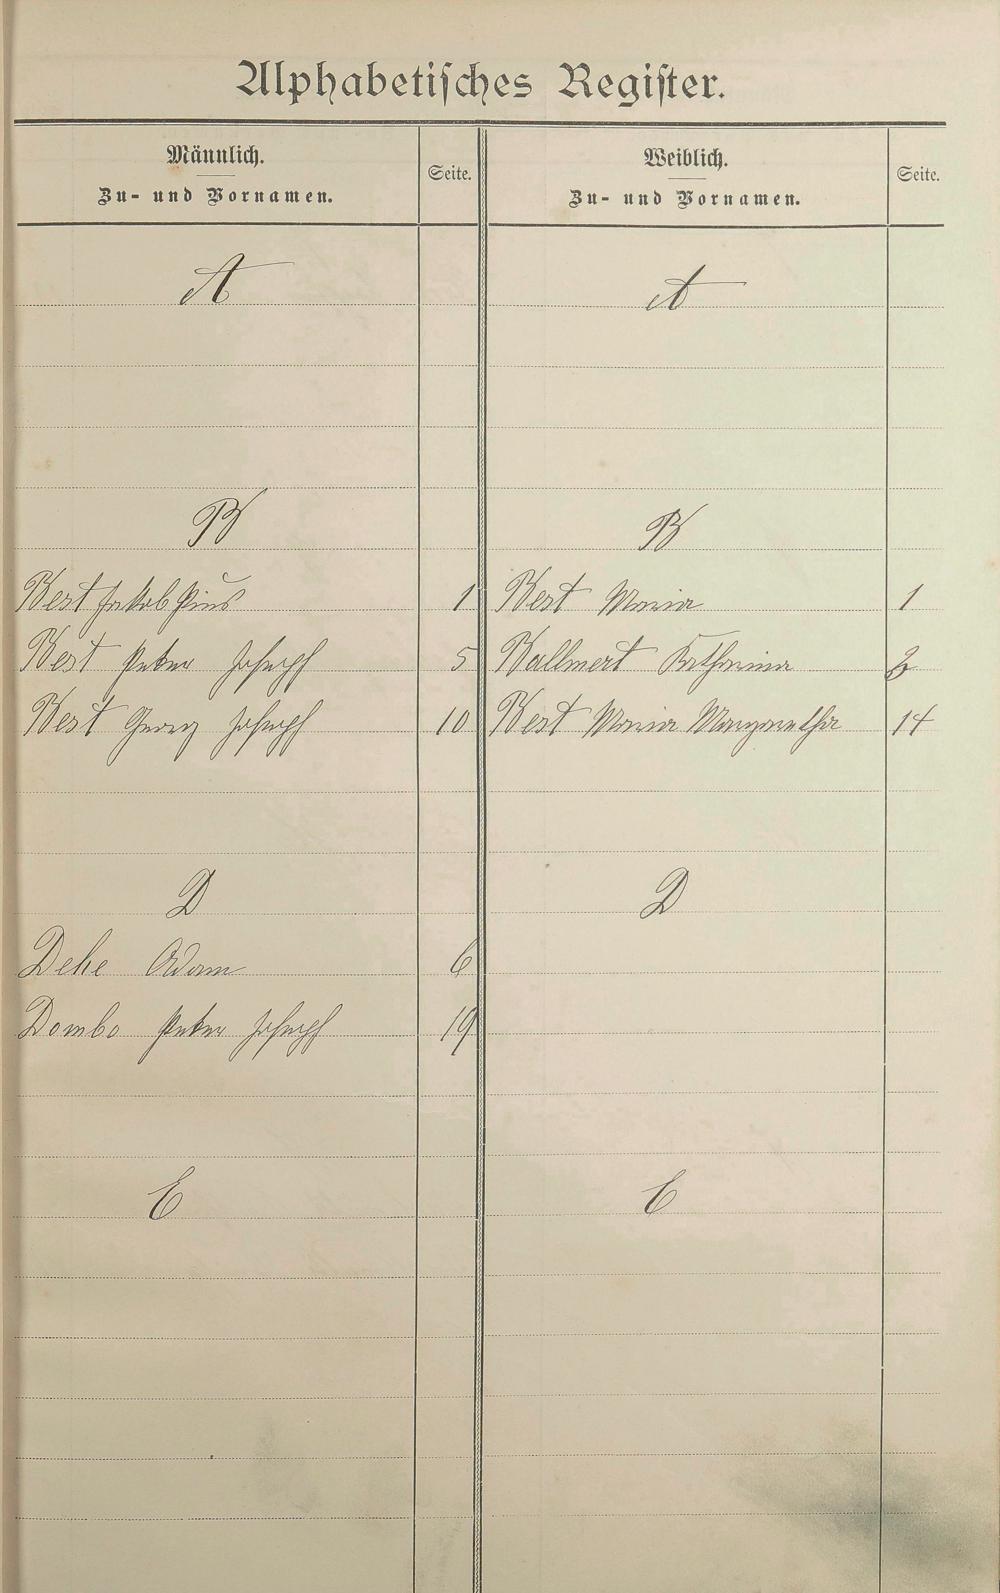 Alphabetisches Register.
Männlich. Seite. Weiblich. Seite.
Zu- und Vornamen. Zu- und Vornamen.
A A
B B
Best Jakob Pius 1 Best Maria 1
Best Peter Joseph 5 Ballmert Katharina
Best Georg Joseph 10 Best Maria Margaretha 14
D D
Dehe Adam 6
Dombo Peter Joseph 19
E E